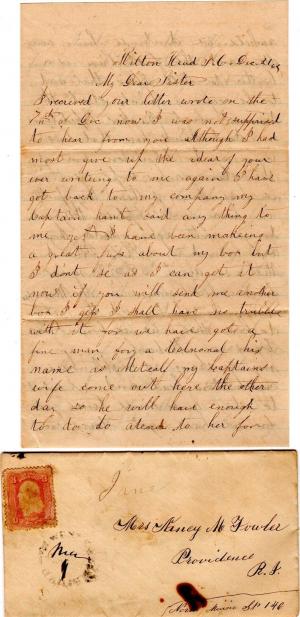 Hilton Head S.C. Dec 21
My Dear Sister
I received your letter wrote on the
7th of Dec now I was not supprised
to hear from you although I had
most give up the idear of your
ever writeing to me again I have
got back to my company my
Captain hant said any thing to
me yet I have been makeing
a great fuss about my box but
I dont se as I can get it
now if you will send me another
box I gess I shall have no trouble
with it for we have got a
fine man for a Colnonal his
name is Metcalf my captains
wife come out here the other
day so he will have enough
to to do atend to her for
Mrs Nancy M Fowler
Providence
R. I.
North St 140